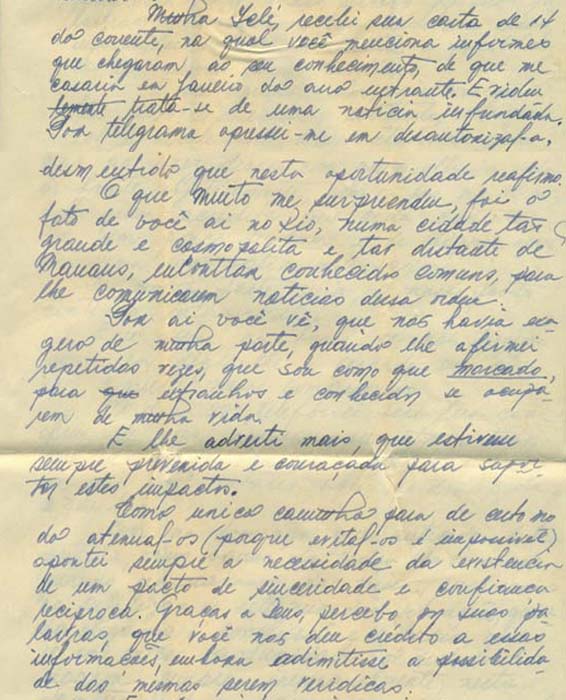 Minha Ielé, recebi sua carta de 14
do corrente, na qual você menciona informes
que chegaram ao seu conhecimento, de que me
casaria em Janeiro do ano entrante. Eviden
temente trata-se de uma noticia infundada.
Por telegrama apressei-me em desautorizal-a,
desmentido que nesta oportunidade reafirmo.
O que muito me surpreendeu, foi o
fato de você ai no Rio, numa cidade tão
grande e cosmopolita e tão distante de
Manaus, encontrar conhecidos comuns, para
lhe comunicarem noticias dessa ordem.
Por ai você vê, que não havia exa
gero de minha parte, quando lhe afirmei
repetidas vezes, que sou como que marcado,
para que extranhos e conhecidos se ocupa
rem de minha vida.
E lhe adverti mais, que estivesse
sempre prevenida e couraçada para supor
tar estes impactos.
Como unico caminho para de certo mo
do atenual-os (porque evital-os é impossivel)
apontei sempre a necessidade da existencia
de um pacto de sinceridade e confiança
reciproca. Graças a Deus, percebo por suas pa
lavras, que você não deu crédito a essas
informações, embora adimitisse a possibilida
de das mesmas serem veridicas.